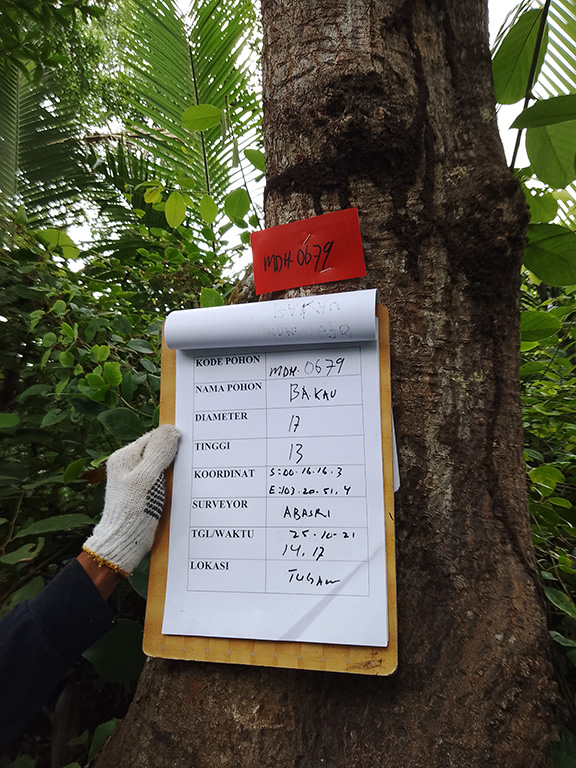 MDH.0679
KODE POHON MDH.0679
NAMA POHON BAKAU
DIAMETER 17
TINGGI 13
KOORDINAT S:00.16.16.3
E:103.20.51.4
SURVEYOR ABASRI
TGL/WAKTU 25-10-21
14.17
LOKASI